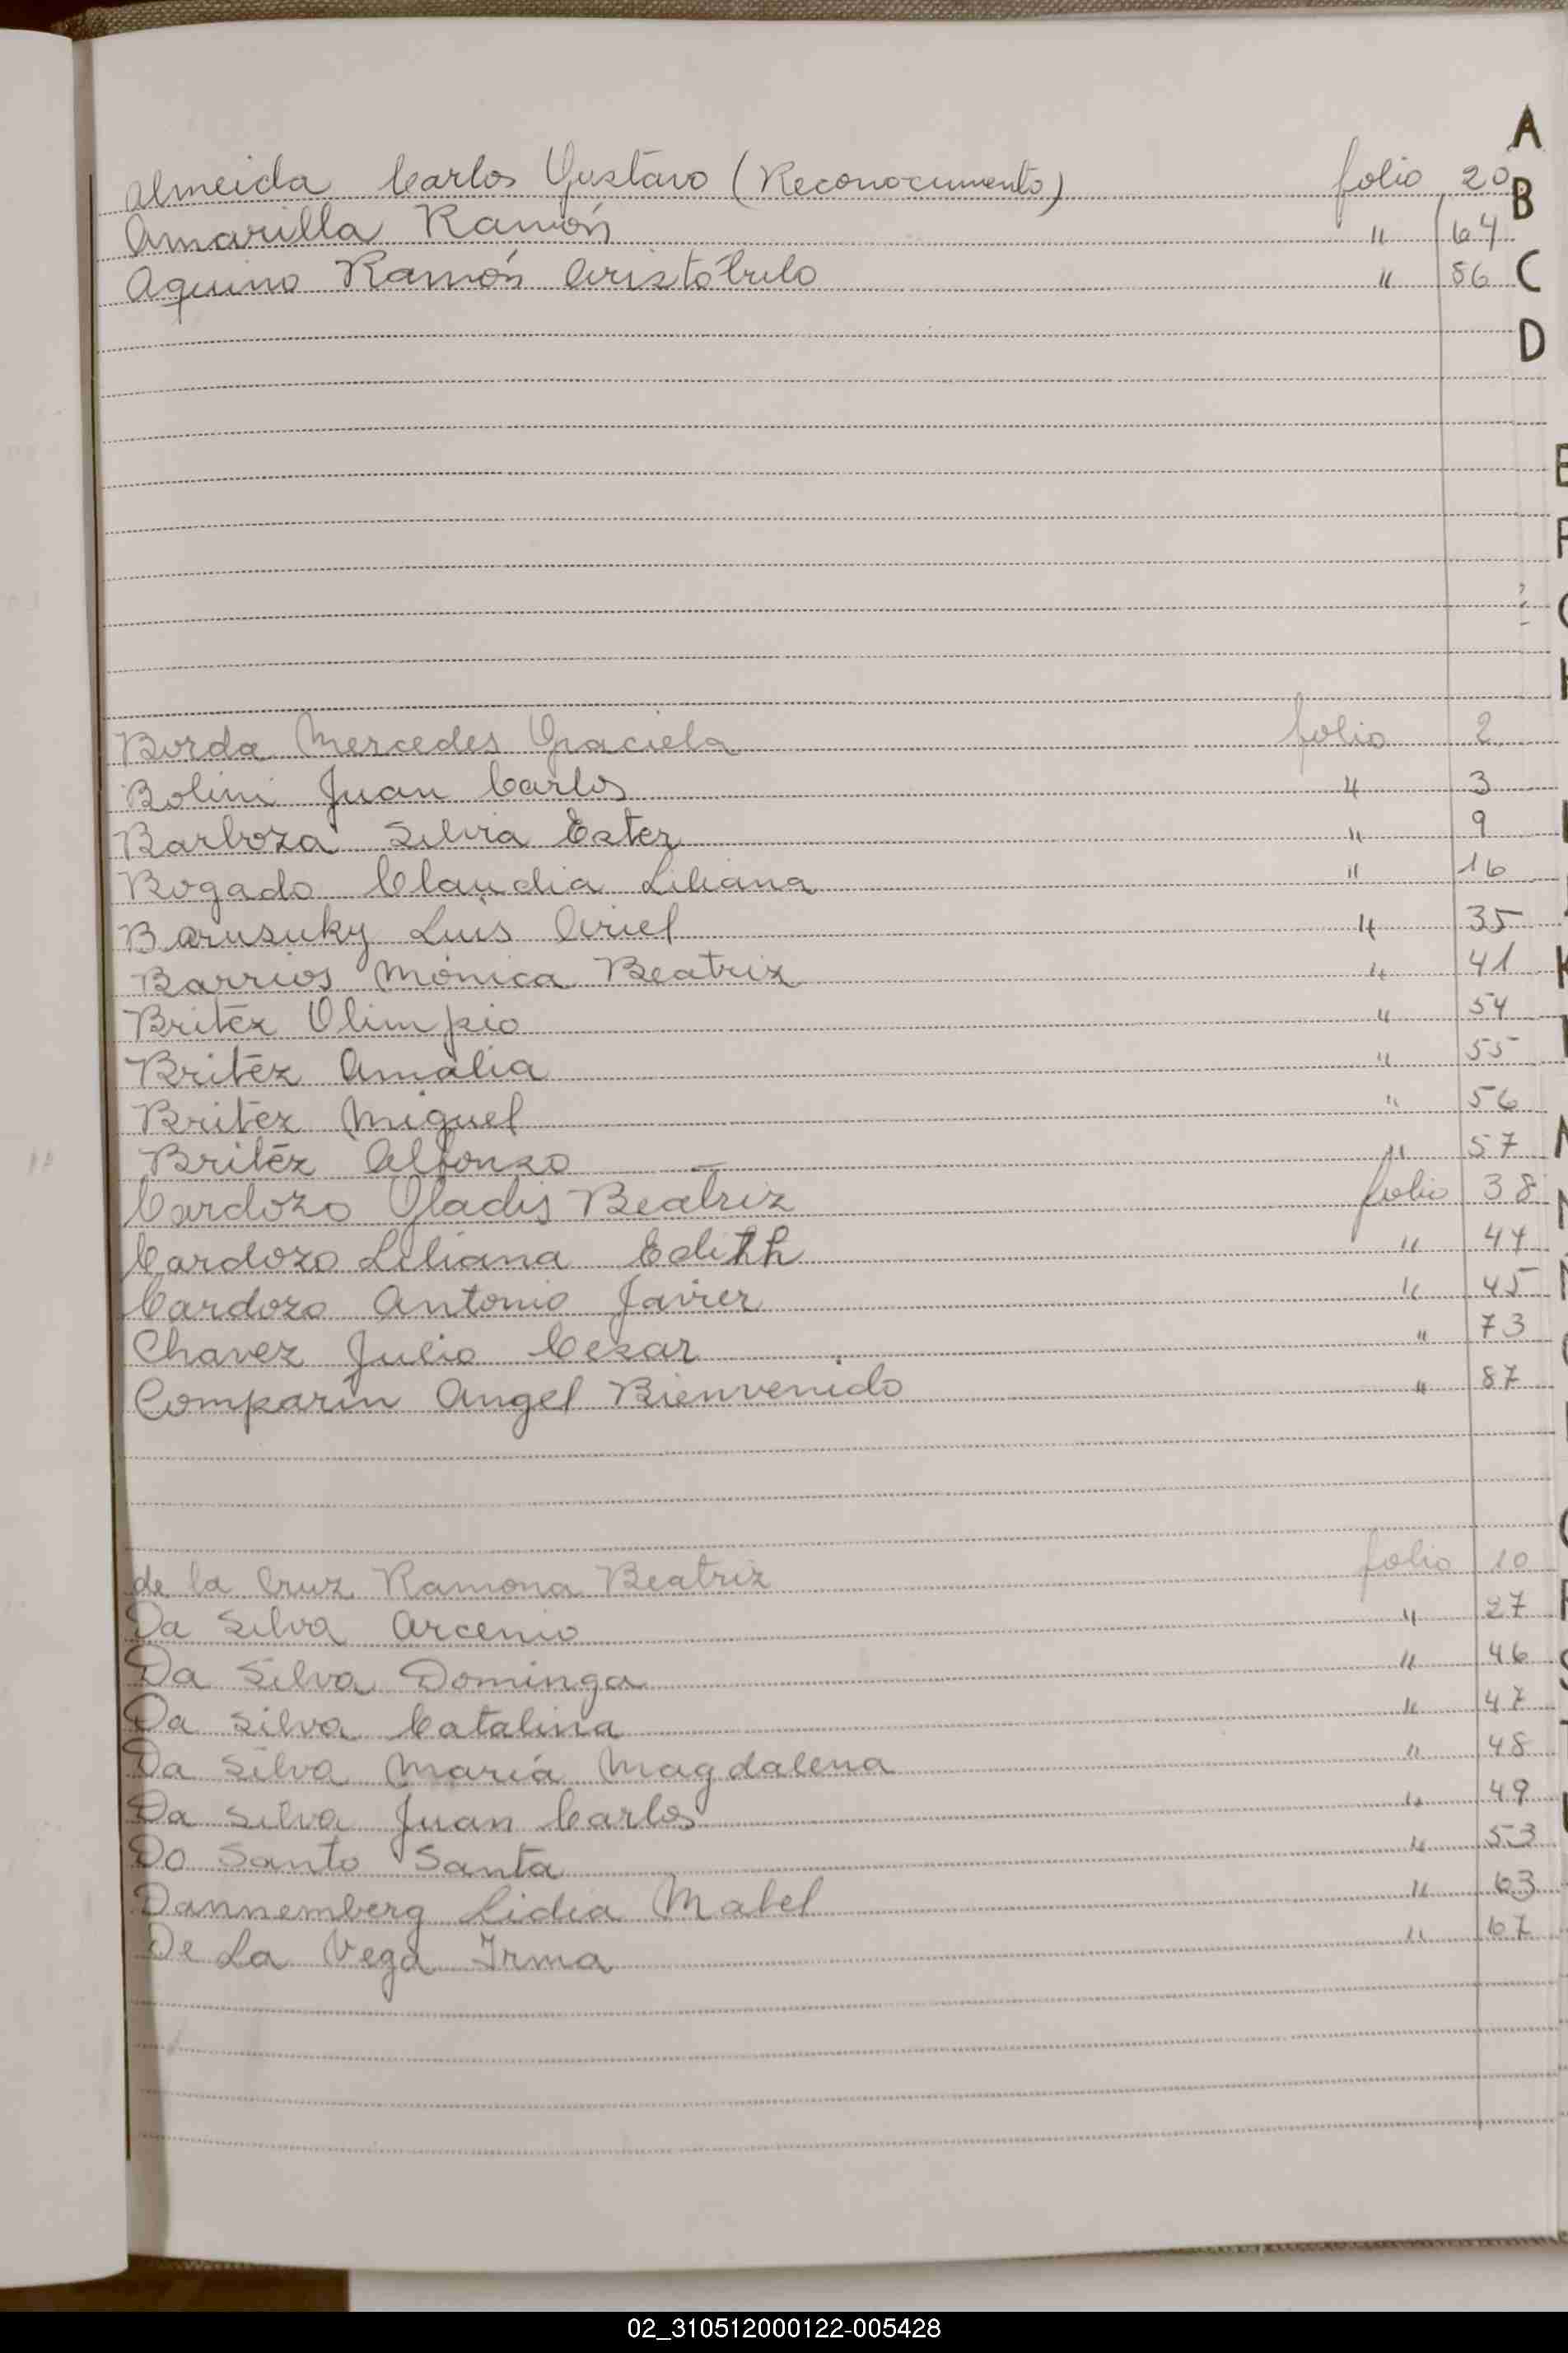 A
Almeida Carlos Gustavo (Reconocimiento) folio 20
B
Amarilla Ramón " 64
Aquino Ramón Aristóbulo " 86
C
D
Borda Mercedes Graciela folio 2
Bolini Juan Carlos " 3
Barboza Silvia Ester " 9
Bogado Claudia Liliana " 16
Barusuky Luis Ariel " 35
Barrios Mónica Beatriz " 41
Britez Olimpio " 54
Britez Amalia " 55
Britez Miguel " 56
Britez Alfonso " 57
Cardozo Gladis Beatriz folio 38
Cardozo Liliana Edith " 44
Cardozo Antonio Javier " 45
Chavez Julio Cesar " 73
Comparin Angel Bienvenido " 87
de la Cruz Ramona Beatriz folio 10
Da Silva Arcenio " 27
Da Silva Dominga " 46
Da Silva Catalina " 47
Da Silva María Magdalena " 48
Da Silva Juan Carlos " 49
Do Santo Santa " 53
Dannemberg Lidia Mabel " 63
De La Vega Irma " 67
02_310512000122-005428